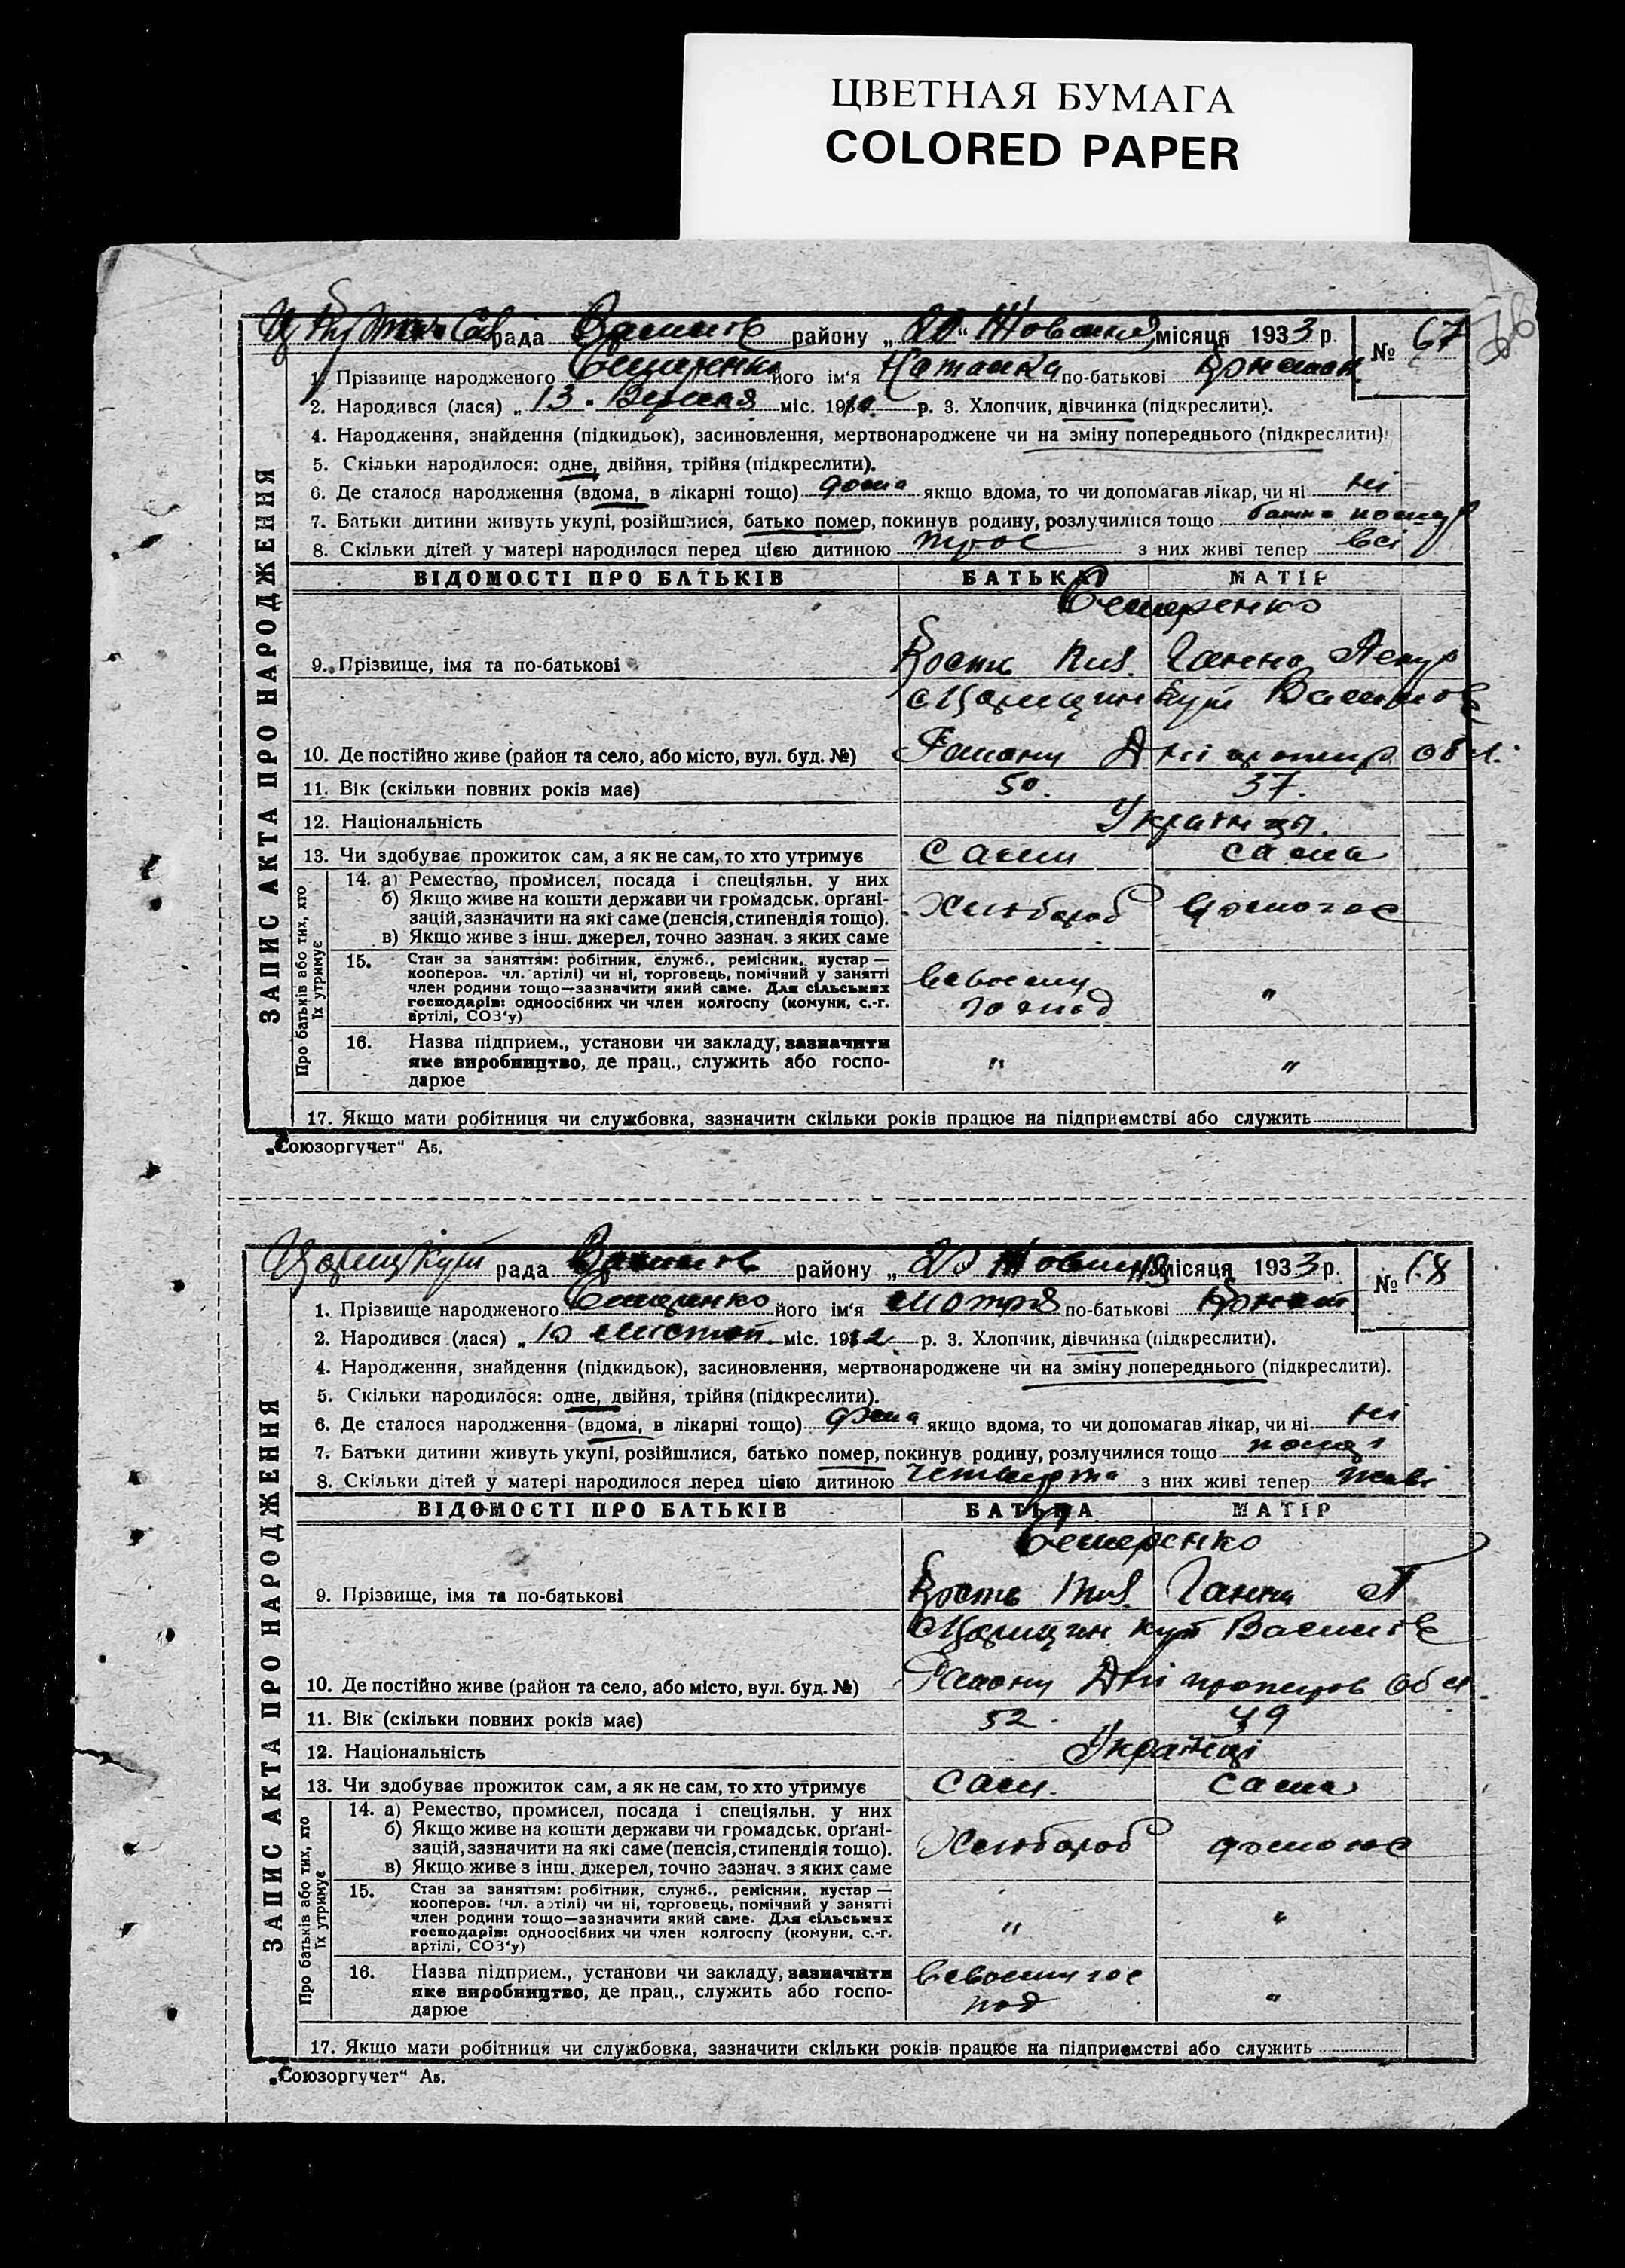 ЦВЕТНАЯ БУМАГА
COLORED PAPER
рада Василів району „20“ Жовтня місяця 1933 р. № 67
1. Прізвище народженого його ім'я Наталка по-батькові
2. Народився (лася) „13“ Вересня міс. 19 р. 3. Хлопчик, дівчинка (підкреслити).
4. Народження, знайдення (підкидьок), засиновлення, мертвонароджене чи на зміну попереднього (підкреслити).
5. Скільки народилося: одне, двійня, трійня (підкреслити).
6. Де сталося народження (вдома, в лікарні тощо) дома якщо вдома, то чи допомагав лікар, чи ні ні
7. Батьки дитини живуть укупі, розійшлися, батько помер, покинув родину, розлучилися тощо батько помер
8. Скільки дітей у матері народилося перед цією дитиною троє з них живі тепер всі
ЗАПИС АКТА ПРО НАРОДЖЕННЯ
ВІДОМОСТІ ПРО БАТЬКІВ БАТЬКА МАТІР
9. Прізвище, імя та по-батькові Ганна
с Царицин Кут Василів
10. Де постійно живе (район та село, або місто, вул. буд. №) Району обл.
11. Вік (скільки повних років має) 50. 37.
12. Національність Українцы.
13. Чи здобуває прожиток сам, а як не сам, то хто утримує Сам сама
Про батьків або тих, хто їх утримує
14. а) Ремество, промисел, посада і спеціяльн. у них
б) Якщо живе на кошти держави чи громадськ. орґані-
зацій, зазначити на які саме (пенсія, стипендія тощо). Хлібороб
в) Якщо живе з інш. джерел, точно зазнач. з яких саме
15. Стан за заняттям: робітник, служб., ремісник, кустар —
кооперов. чл. артілі) чи ні, торговець, помічний у занятті
член родини тощо—зазначити який саме. Для сільських
господарів: одноосібних чи член колгоспу (комуни, с.-г.
артілі, СОЗ'у) "
16. Назва підприєм., установи чи закладу, зазначити
яке виробництво, де прац., служить або госпо- " "
дарює
17. Якщо мати робітниця чи службовка, зазначити скільки років працює на підприємстві або служить
„Союзоргучет“ А5.
Цариц Кут рада Василів району „20 Жовтня місяця 1933 р. № 68
1. Прізвище народженого його ім'я Мотря по-батькові
2. Народився (лася) „ міс. 19 2 р. 3. Хлопчик, дівчинка (підкреслити).
4. Народження, знайдення (підкидьок), засиновлення, мертвонароджене чи на зміну попереднього (підкреслити).
5. Скільки народилося: одне, двійня, трійня (підкреслити).
6. Де сталося народження (вдома, в лікарні тощо) дома якщо вдома, то чи допомагав лікар, чи ні ні
7. Батьки дитини живуть укупі, розійшлися, батько помер, покинув родину, розлучилися тощо помер
8. Скільки дітей у матері народилося перед цією дитиною четверта з них живі тепер живі
ЗАПИС АКТА ПРО НАРОДЖЕННЯ
ВІДОМОСТІ ПРО БАТЬКІВ БАТЬКА МАТІР
9. Прізвище, імя та по-батькові Кость Ганна П
Царицин Кут Василів
10. Де постійно живе (район та село, або місто, вул. буд. №) Району Дніпропетров обл.
11. Вік (скільки повних років має) 52 49
12. Національність Українці
13. Чи здобуває прожиток сам, а як не сам, то хто утримує Сам. сама
Про батьків або тих, хто їх утримує
14. а) Ремество, промисел, посада і спеціяльн. у них
б) Якщо живе на кошти держави чи громадськ. орґані-
зацій, зазначити на які саме (пенсія, стипендія тощо). Хлібороб
в) Якщо живе з інш. джерел, точно зазнач. з яких саме
15. Стан за заняттям: робітник, служб., ремісник, кустар —
кооперов. (чл. артілі) чи ні, торговець, помічний у занятті
член родини тощо—зазначити який саме. Для сільських
господарів: одноосібних чи член колгоспу (комуни, с.-г. " "
артілі, СОЗ'у)
16. Назва підприєм., установи чи закладу, зазначити
яке виробництво, де прац., служить або госпо- "
дарює
17. Якщо мати робітниця чи службовка, зазначити скільки років працює на підприємстві або служить
„Союзоргучет“ А5.